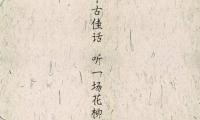 古佳话 听一场花柳